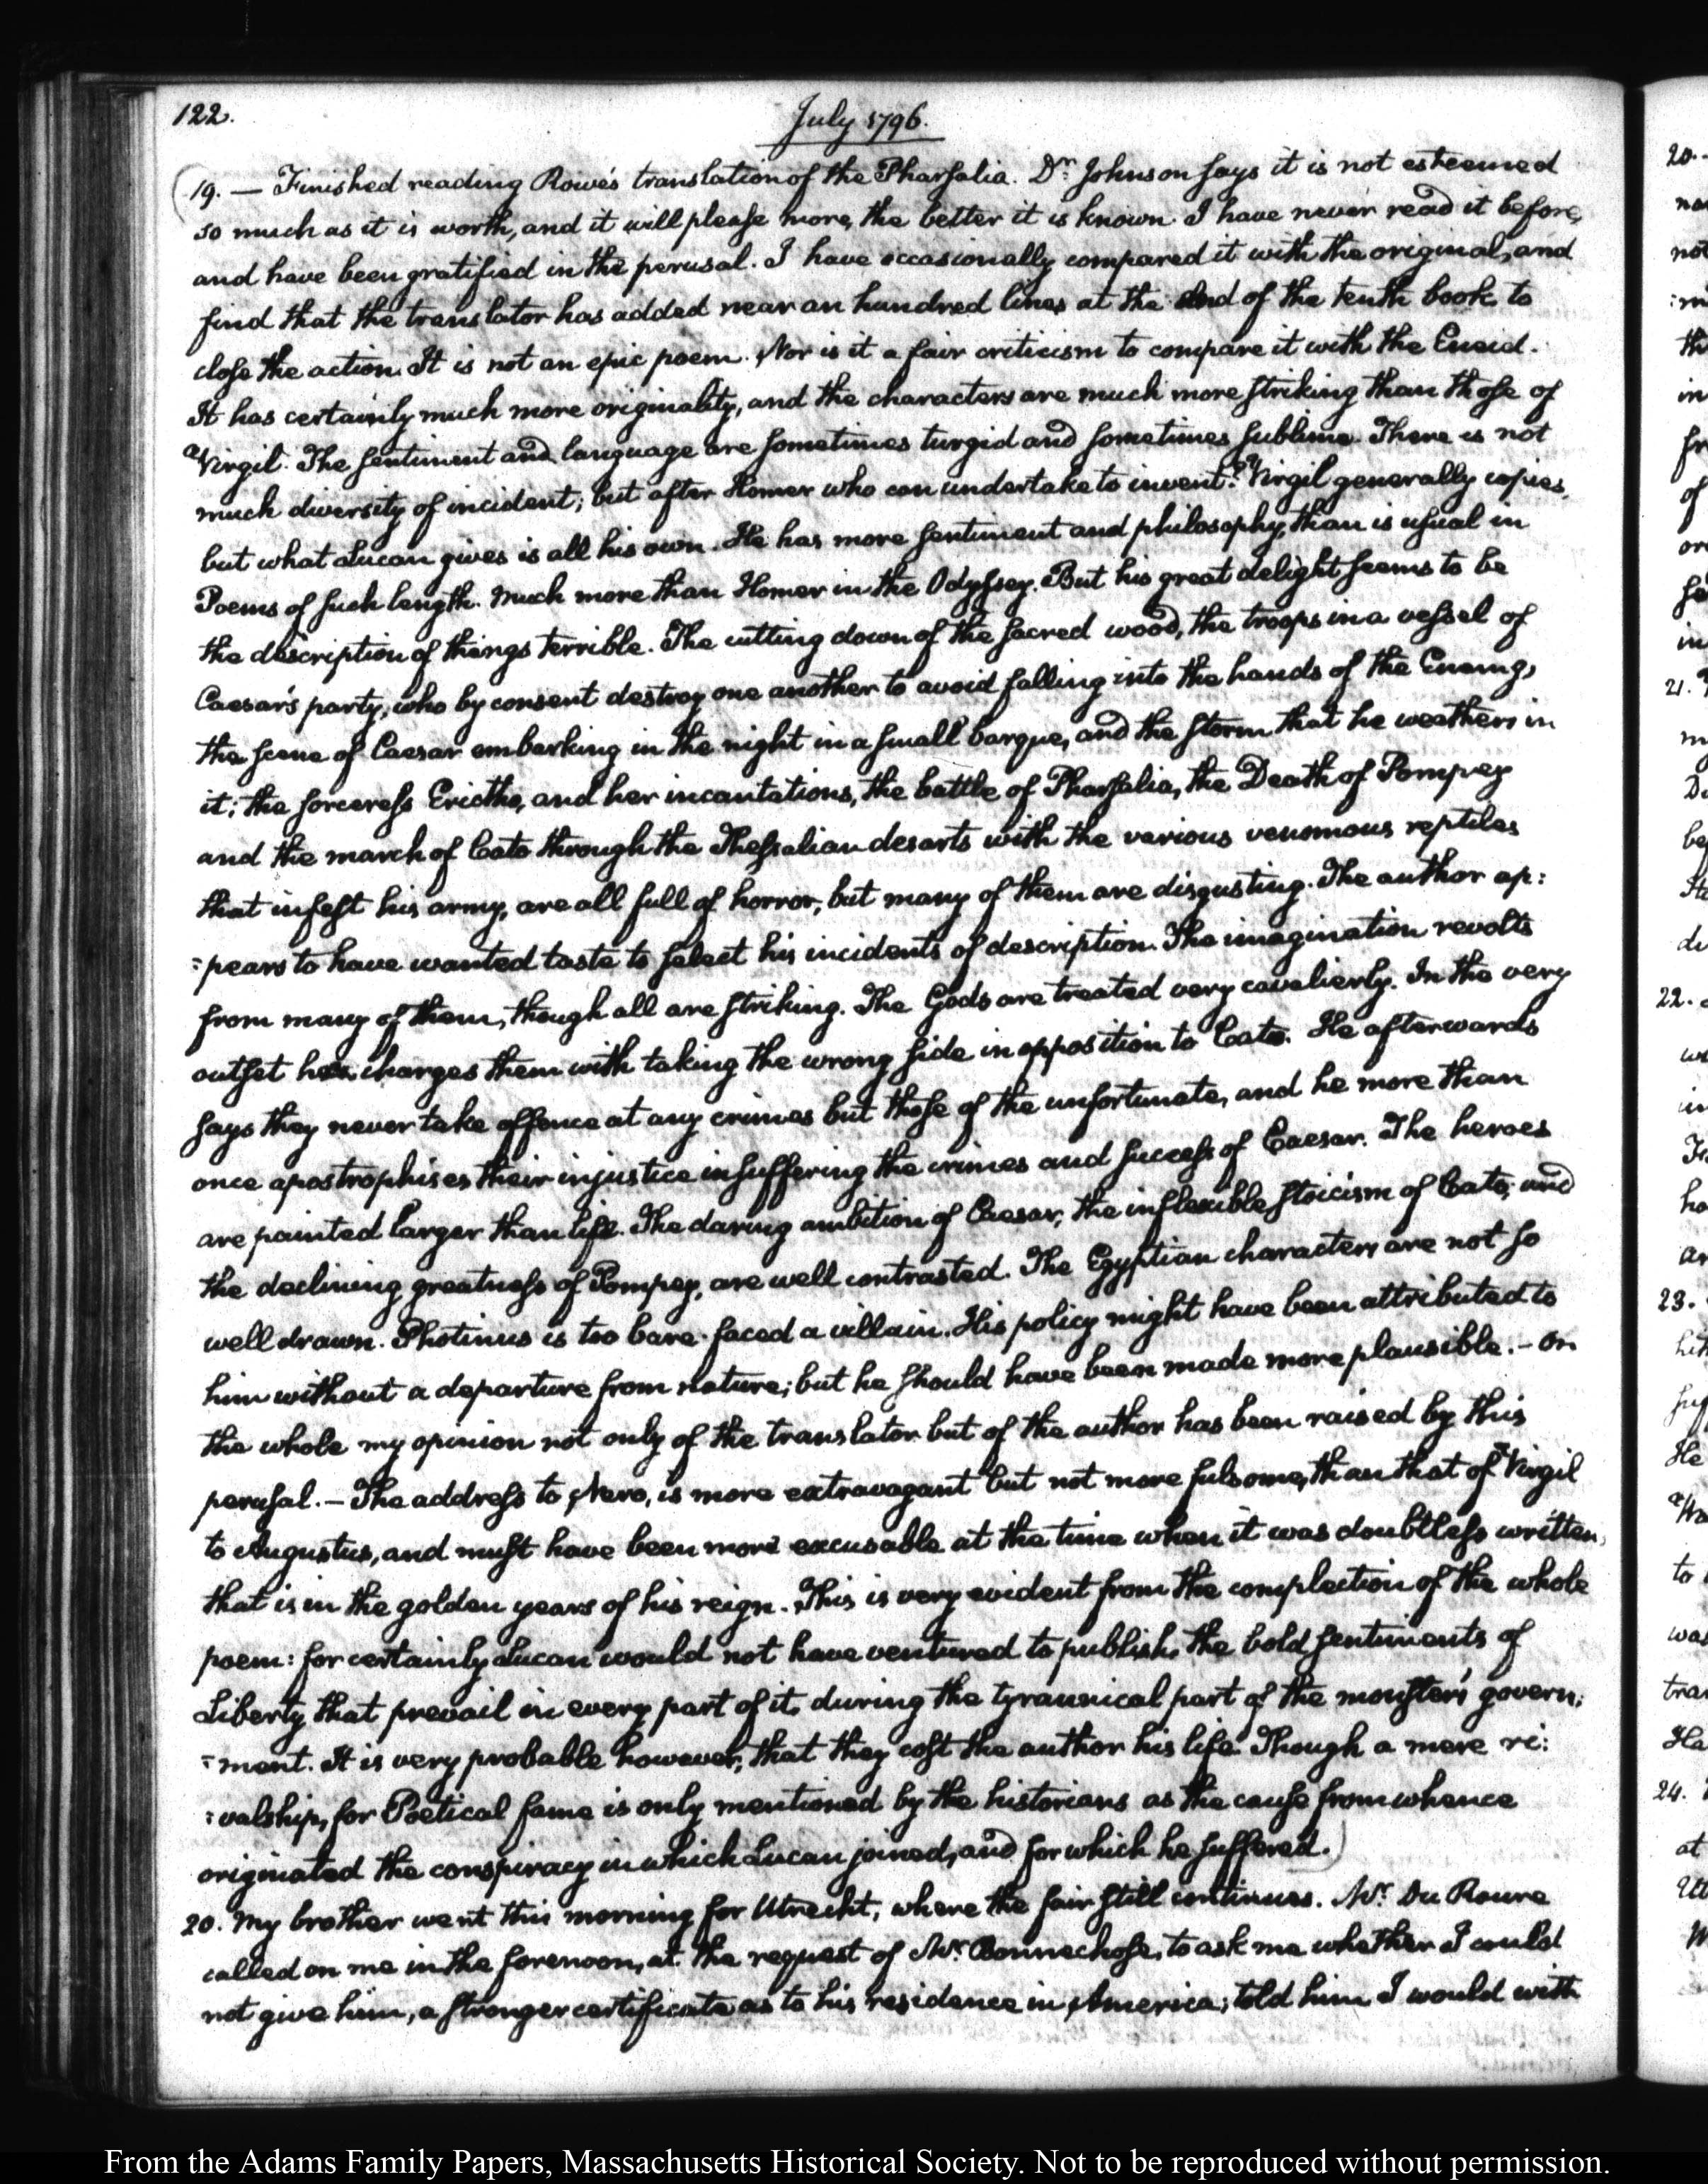 122.
July 1796.
19. — Finished reading Rowe's translation of the Pharsalia. Dr. Johnson says it is not esteemed
so much as it is worth, and it will please more, the better it is known. I have never read it before,
and have been gratified in the perusal. I have occasionally compared it with the original, and
find that the translator has added near an hundred lines at the end of the tenth book, to
close the action. It is not an epic poem. Nor is it a fair criticism to compare it with the Eneid.
It has certainly much more originality, and the characters are much more striking than those of
Virgil. The sentiment and language are sometimes turgid and sometimes sublime. There is not
much diversity of incident; but after Homer who can undertake to invent? Virgil generally copies,
but what Lucan gives is all his own. He has more sentiment and philosophy, than is usual in
Poems of such length. Much more than Homer in the Odyssey. But his great delight seems to be
the description of things terrible. The cutting down of the sacred wood, the troops in a vessel of
Caesar's party, who by consent destroy one another to avoid falling into the hands of the Enemy,
the scene of Caesar embarking in the night in a small barque, and the storm that he weathers in
it; the sorceress Erictho, and her incantations, the battle of Pharsalia, the Death of Pompey
and the march of Cato through the Thessalian desarts with the various venomous reptiles
that infest his army, are all full of horror, but many of them are disgusting. The author ap:
:pears to have wanted taste to select his incidents of description. The imagination revolts
from many of them, though all are striking. The Gods are treated very cavalierly. In the very
outset he charges them with taking the wrong side in opposition to Cato. He afterwards
says they never take offence at any crimes but those of the unfortunate, and he more than
once apostrophises their injustice in suffering the crimes and success of Caesar. The heroes
are painted larger than life. The daring ambition of Caesar, the inflexible stoicism of Cato, and
the declining greatness of Pompey, are well contrasted. The Egyptian characters are not so
well drawn. Photinus is too bare-faced a villain. His policy might have been attributed to
him without a departure from nature; but he should have been made more plausible. — On
the whole my opinion not only of the translator but of the author has been raised by this
perusal. — The address to Nero, is more extravagant but not more fulsome, than that of Virgil
to Augustus, and must have been more excusable at the time when it was doubtless written,
that is in the golden years of his reign. This is very evident from the complection of the whole
poem: for certainly Lucan would not have ventured to publish, the bold sentiments of
Liberty that prevail in every part of it, during the tyrannical part of the monster's govern:
:ment. It is very probable however, that they cost the author his life. Though a mere ri:
:valship, for Poetical fame is only mentioned by the historians as the cause from whence
originated the conspiracy in which Lucan joined, and for which he suffered.
20. My brother went this morning for Utrecht, where the fair still continues. Mr. Du Roure
called on me in the forenoon, at the request of Mr. Bonnechose, to ask me whether I could
not give him, a stronger certificate as to his residence in America; told him I would with
20.
21.
22.
23.
24.
From the Adams Family Papers, Massachusetts Historical Society. Not to be reproduced without permission.